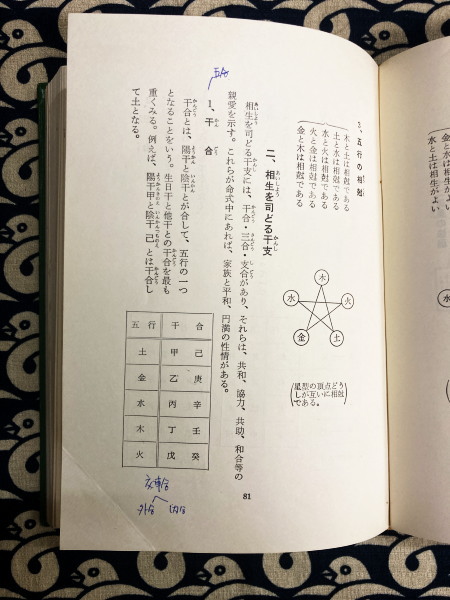 3、五行の相剋
木と土は相剋である
土と水は相剋である
水と火は相剋である
火と金は相剋である
金と木は相剋である
木
火
土
金
水
(星型の頂点どう
しが互いに相剋
である。)
二、相生を司どる干支
相生を司どる干支には、干合・三合・支合があり、それらは、共和、協力、共助、和合等の
親愛を示す。これらが命式中にあれば、家族と平和、円満の性情がある。
1、干合
干合とは、陽干と陰干とが合して、五行の一つ
となることをいう。生日干と他干との干合を最も
重くみる。例えば、陽干甲と陰干己とは干合し
て土となる。
五行 干合
土 甲 己
金 乙 庚
水 丙 辛
木 丁 壬
火 戊 癸
外合 内合
81
水と土は相生がよい